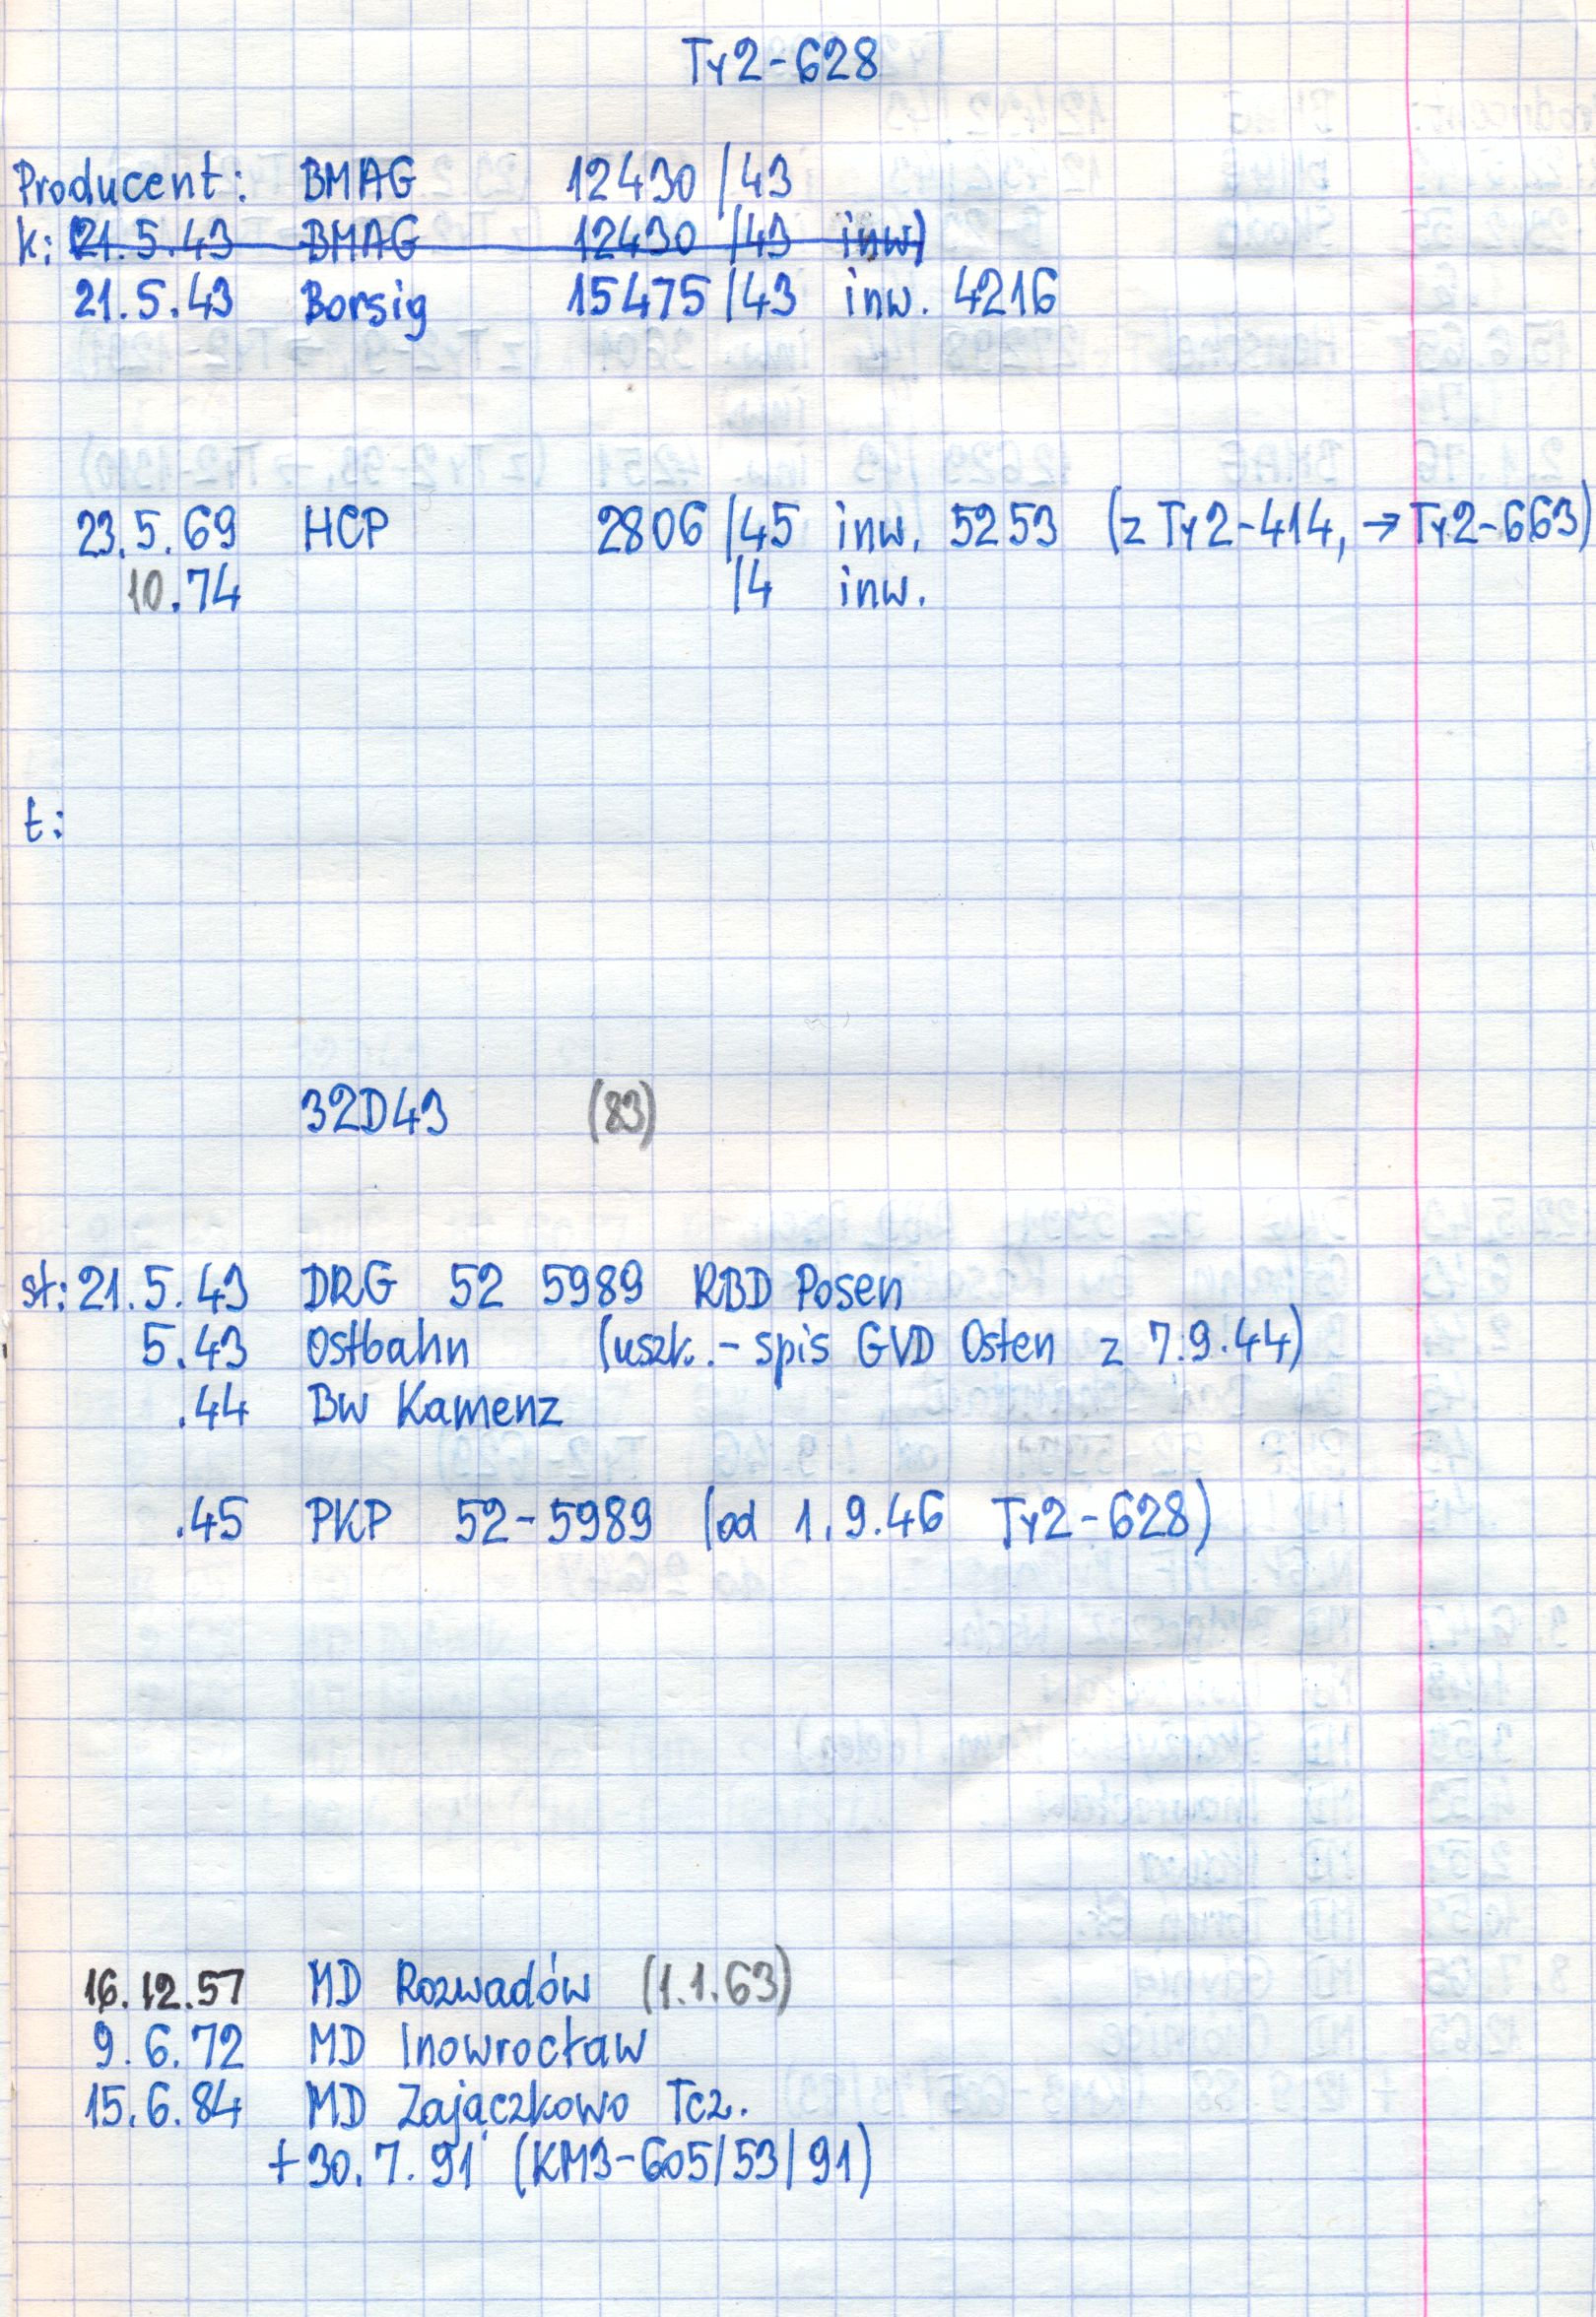 Ty2-628
Producent: BMAG 12430 /43
k: 21.5.43 BMAG 12430 /43 inw)
21.5.43 Borsig 15475 /43 inw. 4216
23.5.69 HCP 2806 /45 inw. 5253 (z Ty2-414, → Ty2-663)
10.74 /4 inw.
t:
32D43 (83)
st: 21.5.43 DRG 52 5989 RBD Posen
5.43 Ostbahn (uszk. - spis GVD Osten z 7.9.44)
.44 Bw Kamenz
.45 PKP 52-5989 (od 1.9.46 Ty2-628)
16.12.57 MD Rozwadów (1.1.63)
9.6.72 MD Inowrocław
15.6.84 MD Zajączkowo Tcz.
+30.7.91 (KM3-605/53/91)